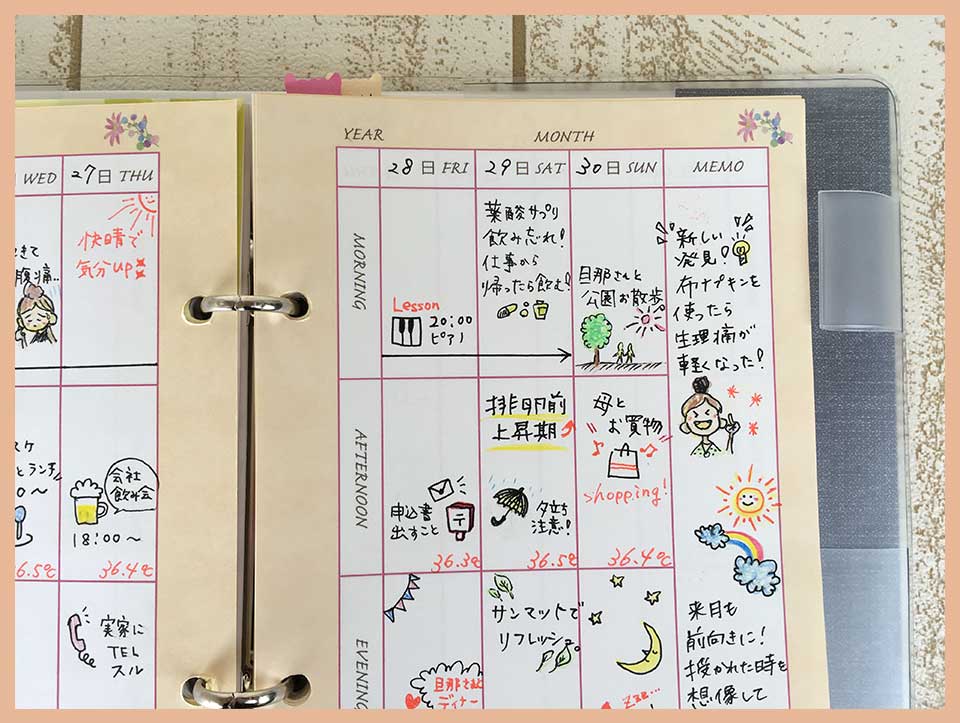 WED
27日 THU
快晴で
気分up
腹痛..
会社
飲み会
18:00〜
36.5℃
36.4℃
実家に
TEL
スル
YEAR
MONTH
28日 FRI
29日 SAT
30日 SUN
MEMO
MORNING
Lesson
20:00
ピアノ
葉酸サプリ
飲み忘れ!
仕事から
帰ったら飲む!
旦那さんと
公園お散歩
新しい
発見!
布ナプキンを
使ったら
生理痛が
軽くなった!
AFTERNOON
申込書
出すこと
36.3℃
排卵前
上昇期
夕立ち
注意!
36.5℃
母と
お買物
shopping!
36.4℃
EVENING
旦那さんと
ディナー
サンマットで
リフレッシュ
zzz...
来月も
前向きに!
授かれた時を
想像して